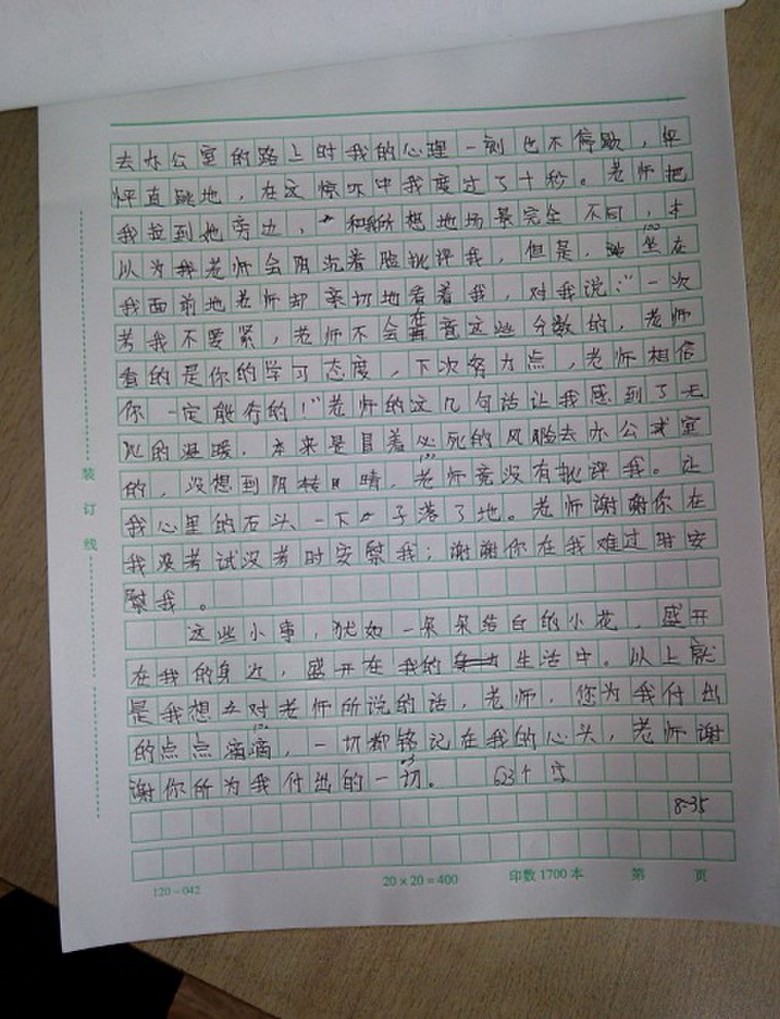 去办公室的路上时我的心理一刻也不停歇，怦
怦直跳地，在这惊吓中我度过了十秒。老师把
我拉到她旁边，和我所想地场景完全不同，本
以为我老师会阴沉着脸批评我，但是，坐在
我面前地老师却亲切地看着我，对我说：“一次
考我不要紧，老师不会在意这些分数的，老师
看的是你的学习态度，下次努力点，老师相信
你一定能行的！”老师的这几句话让我感到了无
比的温暖，本来是冒着必死的风险去办公室
的，没想到阴转晴，老师竟没有批评我。让
我心里的石头一下子落了地。老师谢谢你在
我没考试没考时安慰我；谢谢你在我难过时安
慰我。
这些小事，犹如一朵朵洁白的小花，盛开
在我的身边，盛开在我的生活中。以上就
是我想对老师所说的话，老师，您为我付出
的点点滴滴，一切都铭记在我的心头，老师谢
谢你所为我付出的一切。 623个字
8:35
装
订
线
120-042
20×20=400
印数1700本
第 页